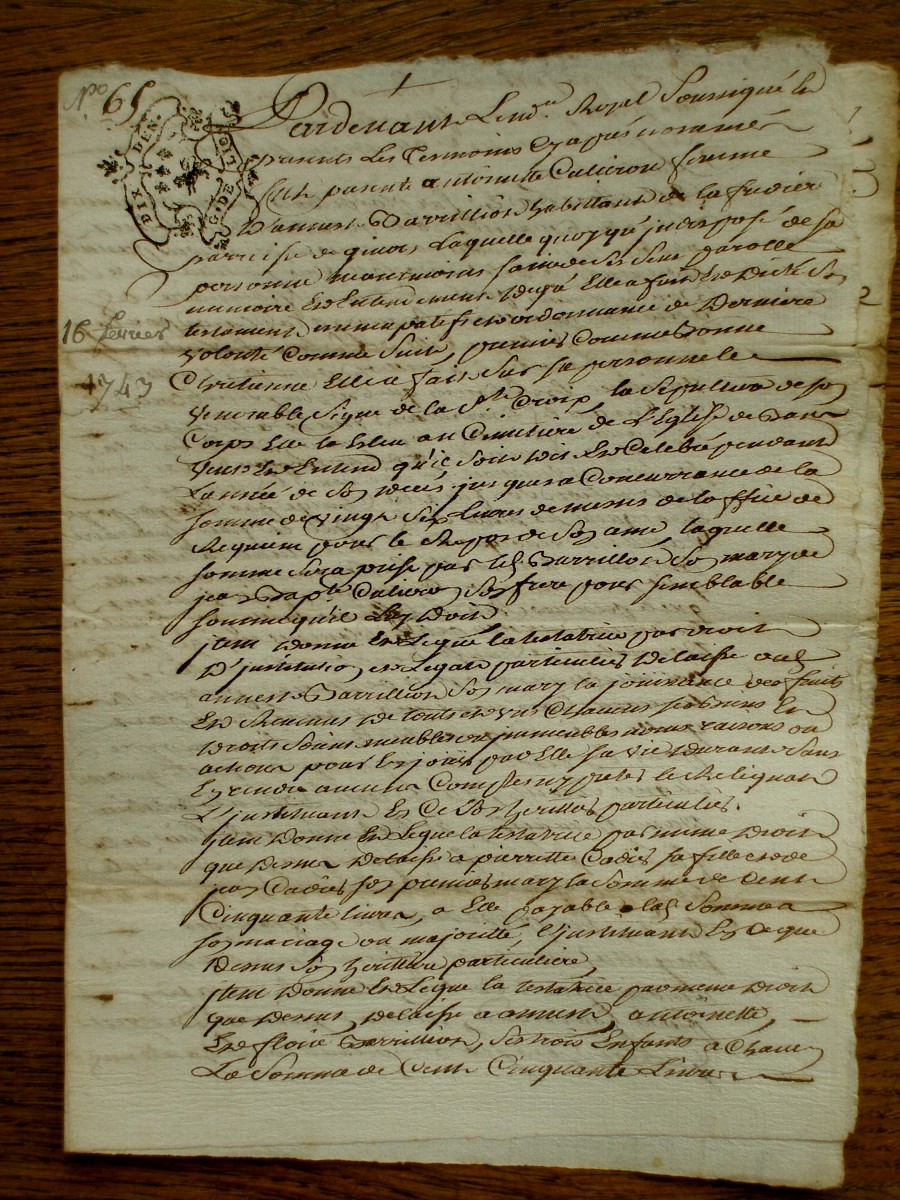 N° 65
DIX DEN. G. DE LION
Pardevant Le nore. Royal Soussigné &
presents Les Temoins cy apres nommés
fut presente antoinette Cutieron femme
d'annest Barrillion habittant de la
parroisse de givors Laquelle quoyqu'indisposé de sa
personne neantmoins saine de ses sens parolle
memoire et Entendement de gré Elle a fait et dicté son
testament nuncupatif et ordonnance de Derniere
16 fevrier
volonté Comme Suit, premier Comme Bonne
1743
Chretienne Elle a fait Sur sa personne le
venerable Signe de la Ste. Croix, la Sepulture de son
Corps Elle la Eslue au Cimitiere de L'Eglise de
veut Et Entend qu'il soit dit Et Celebré pendant
L'année de son deces jusques a Concurrance de la
somme de vingt six Livres de messes de L'office de
Requiem pour le Repos de son ame, laquelle
somme sera prise par led. Barrillion son mary de
jean Bapte. Cutieron son frere pour semblable
somme qu'il Luy Doit,
jtem Donne Et Legue la testatrice par droit
D'jnstitution et Legat particulier Delaisse aud.
annest Barrillion son mary la jouissance des fruits
Et Revenus de touts et uns Chacuns ses biens Et
droits soint meubles jmmeubles noms raisons ou
actions pour en jouir par Elle sa vie Durant Sans
En rendre aucun Compte ny preter le Reliquat
L'jnstituant En Ce Son heritier particulier.
jtem Donne Et Legue la testatrice par meme Droit
que Dessus Delaisse a pierrette Cadier sa fille et de
jean Cadier son premier mary la Somme de Cent
Cinquante livres, a Elle payable lad. Somme a
son mariage ou majorité, L'jnstituant En Ce que
Dessus Son heritiere particuliere,
jtem Donne Et Legue la testatrice par meme Droit
que Dessus, Delaisse a annest, antoinette,
Et fleurie Barrillion, ses trois Enfants a Chacun
La Somme de Cent Cinquante Livres